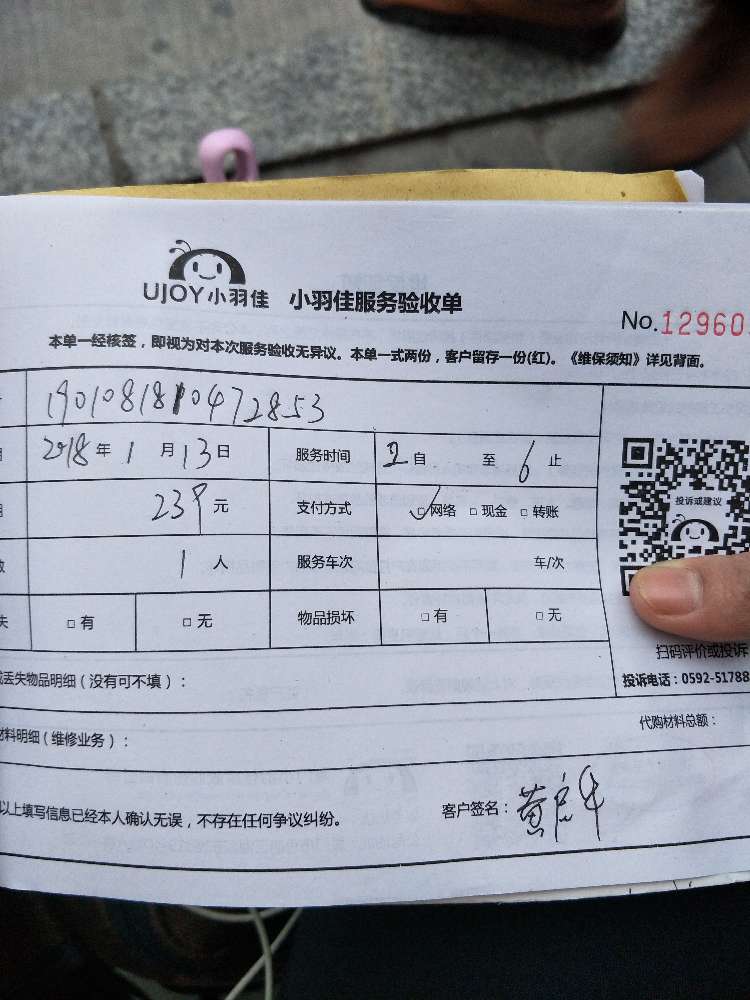 UJOY小羽佳 小羽佳服务验收单
No.12960
本单一经核签，即视为对本次服务验收无异议。本单一式两份，客户留存一份(红)。《维保须知》详见背面。
1901081810472853
2018年1月13日 服务时间 2自 至6止
239元 支付方式 ☑网络 □现金 □转账
1人 服务车次 车/次
失 □有 □无 物品损坏 □有 □无
投诉或建议
扫码评价或投诉
投诉电话：0592-51788
丢失物品明细（没有可不填）：
材料明细（维修业务）： 代购材料总额：
以上填写信息已经本人确认无误，不存在任何争议纠纷。 客户签名：黄